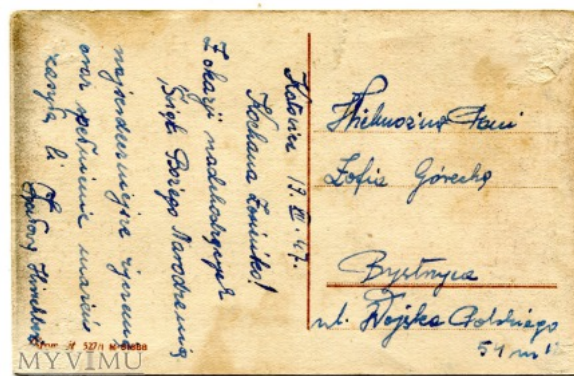 Katowice 19.XII.47.
Kochana Zosieńko!
Z okazji nadchodzących
Świąt Bożego Narodzenia
najserdeczniejsze życzenia
oraz spełnienia marzeń
zasyła Ci
Wielmożna Pani
Zofia Górecka
Bystrzyca
ul. Wojska Polskiego
54 m
527/I
MYVIMU